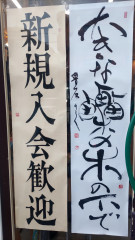 大きな の木の下で
新規入会歓迎